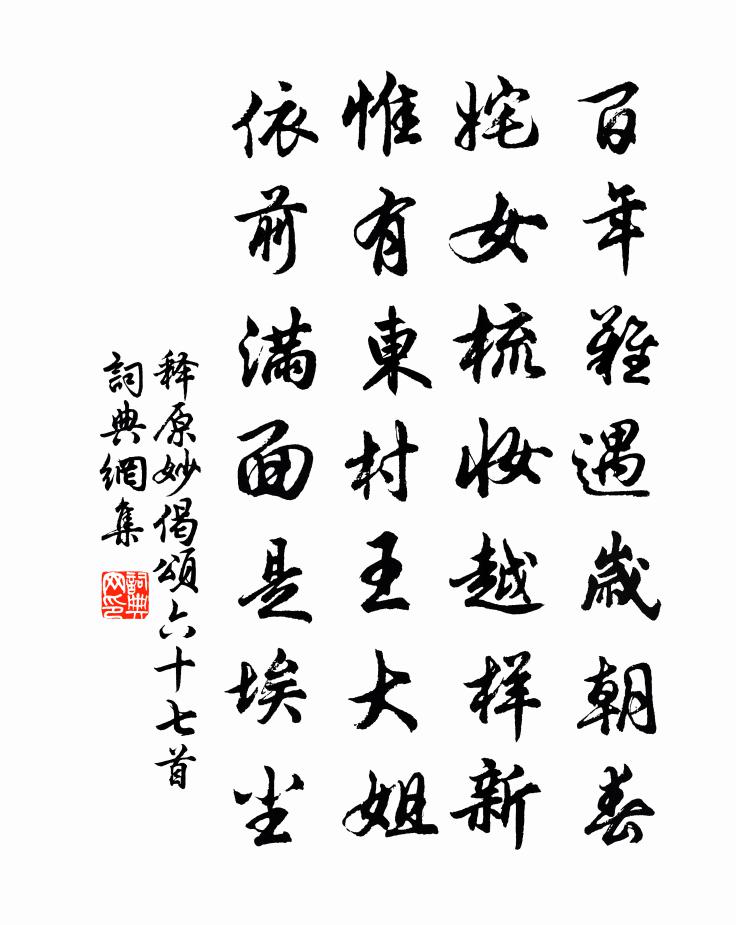 百年難遇歲朝春
姹女梳妝越样新
惟有東村王大姐
依前满面是埃尘
释原妙偈頌六十七首
詞典網集
詞典网印